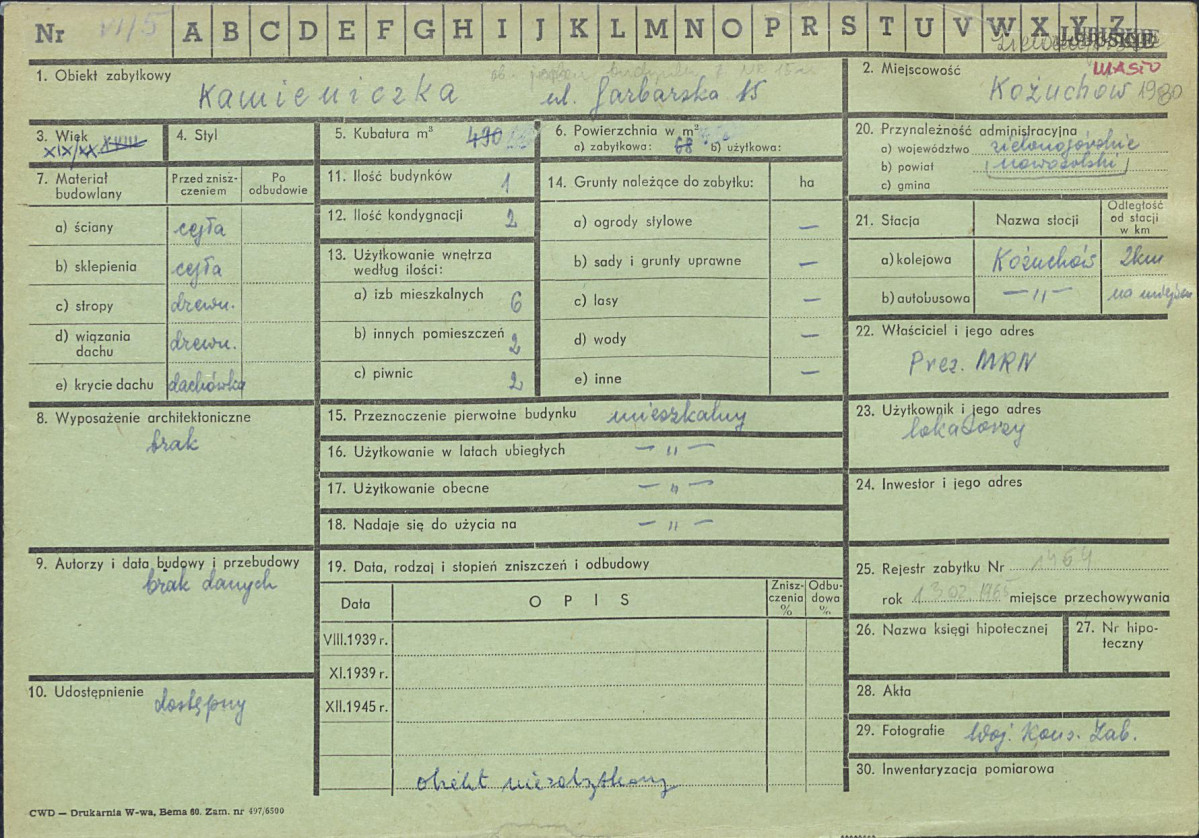 Nr VI/5 A B C D E F G H I J K L M N O P R S T U V W X Y Z
LUBUSKIE
1. Obiekt zabytkowy
Kamieniczka ul. Garbarska 15
2. Miejscowość MIASTO
Kożuchów 1980
3. Wiek XIX/XX XVIII
4. Styl
5. Kubatura m³ 490
6. Powierzchnia w m²
a) zabytkowa: 68 b) użytkowa:
20. Przynależność administracyjna
a) województwo zielonogórskie
b) powiat nowosolski
c) gmina
7. Materiał budowlany
Przed zniszczeniem
Po odbudowie
a) ściany cegła
b) sklepienia cegła
c) stropy drewn.
d) wiązania dachu drewn.
e) krycie dachu dachówka
11. Ilość budynków 1
12. Ilość kondygnacji 2
13. Użytkowanie wnętrza według ilości:
a) izb mieszkalnych 6
b) innych pomieszczeń 2
c) piwnic 2
14. Grunty należące do zabytku: ha
a) ogrody stylowe —
b) sady i grunty uprawne —
c) lasy —
d) wody —
e) inne —
21. Stacja Nazwa stacji Odległość od stacji w km
a) kolejowa Kożuchów 2km
b) autobusowa — " — na miejscu
22. Właściciel i jego adres
Prez. MRN
8. Wyposażenie architektoniczne
brak
15. Przeznaczenie pierwotne budynku mieszkalny
16. Użytkowanie w latach ubiegłych — " —
17. Użytkowanie obecne — " —
18. Nadaje się do użycia na — " —
23. Użytkownik i jego adres
lokatorzy
24. Inwestor i jego adres
9. Autorzy i data budowy i przebudowy
brak danych
19. Data, rodzaj i stopień zniszczeń i odbudowy
Data OPIS Zniszczenia % Odbudowa %
VIII.1939 r.
XI.1939 r.
XII.1945 r.
obiekt niezabytkowy
25. Rejestr zabytku Nr 1464
rok 13.02.1965 miejsce przechowywania
26. Nazwa księgi hipotecznej
27. Nr hipoteczny
10. Udostępnienie dostępny
28. Akta
29. Fotografie Woj. Kons. Zab.
30. Inwentaryzacja pomiarowa
CWD — Drukarnia W-wa, Bema 60. Zam. nr 497/6500